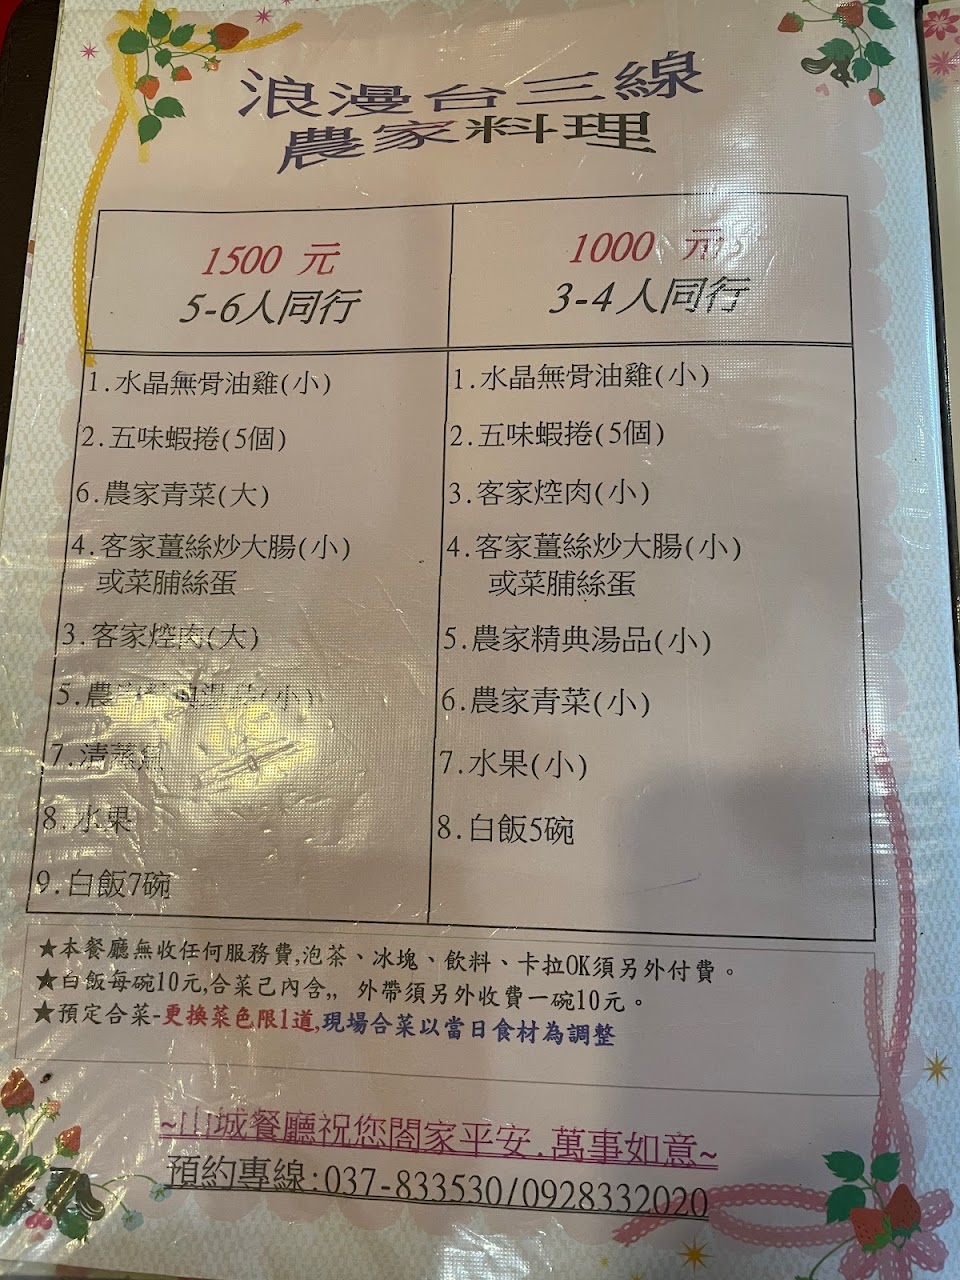 浪漫台三線
農家料理
1500 元
5-6人同行
1.水晶無骨油雞(小)
2.五味蝦捲(5個)
6.農家青菜(大)
4.客家薑絲炒大腸(小)
或菜脯絲蛋
3.客家焢肉(大)
5.農 湯 (小)
7.清蒸魚
8.水果
9.白飯7碗
1000 元
3-4人同行
1.水晶無骨油雞(小)
2.五味蝦捲(5個)
3.客家焢肉(小)
4.客家薑絲炒大腸(小)
或菜脯絲蛋
5.農家精典湯品(小)
6.農家青菜(小)
7.水果(小)
8.白飯5碗
★本餐廳無收任何服務費,泡茶、冰塊、飲料、卡拉OK須另外付費。
★白飯每碗10元,合菜己內含,,外帶須另外收費一碗10元。
★預定合菜-更換菜色限1道,現場合菜以當日食材為調整
~山城餐廳祝您閤家平安.萬事如意~
預約專線:037-833530/0928332020